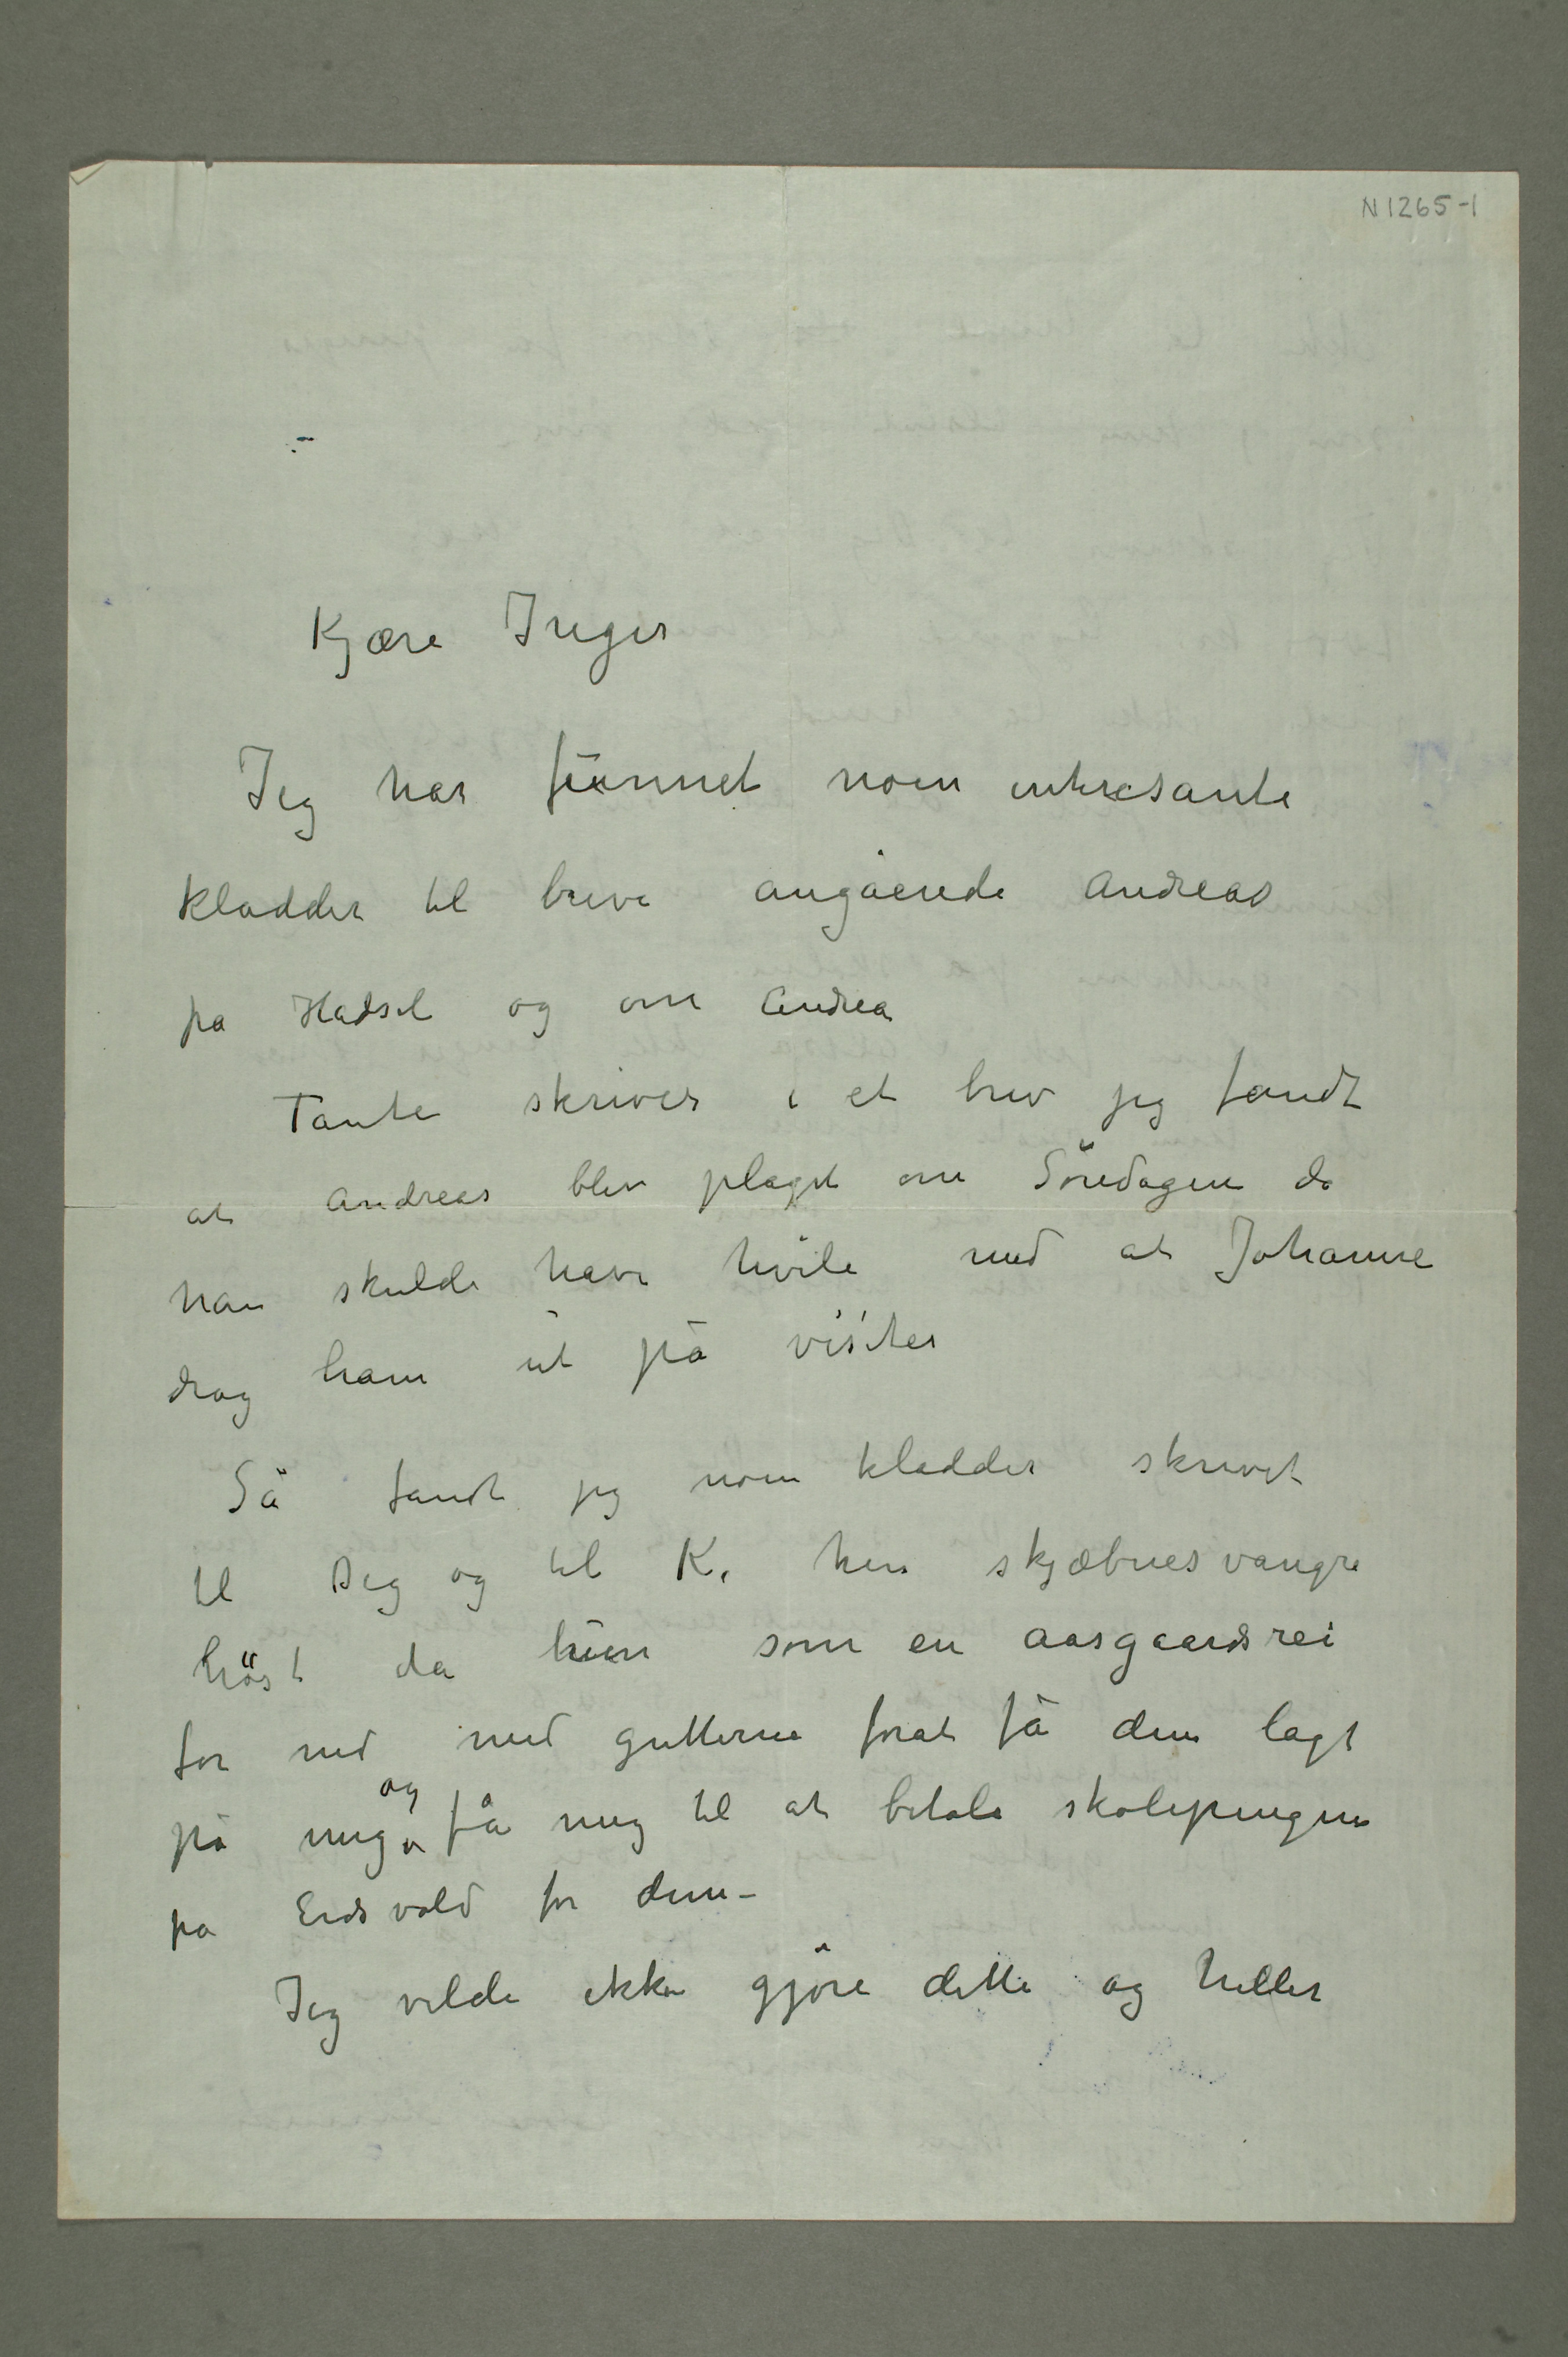 N 1265-1
Kjære Inger
Jeg har funnet noen interesante
kladder til breve angående Andreas
pa Hadsel og om Andrea
Tante skriver i et brev jeg fandt
at Andreas blev plaget om Söndagen da
han skulde have hvile med at Johanne
drog ham ut på visiter
Så fandt jeg noen kladder skrevet
til Dig og til K. hin skjæbnesvangre
höst da hun som en aasgaardsrei
for ned med gutterne forat få dem lagt
på mig og få mig til at betale skolepengene
pa Eidsvold for dem –
Jeg vilde ikke gjöre dette og heller